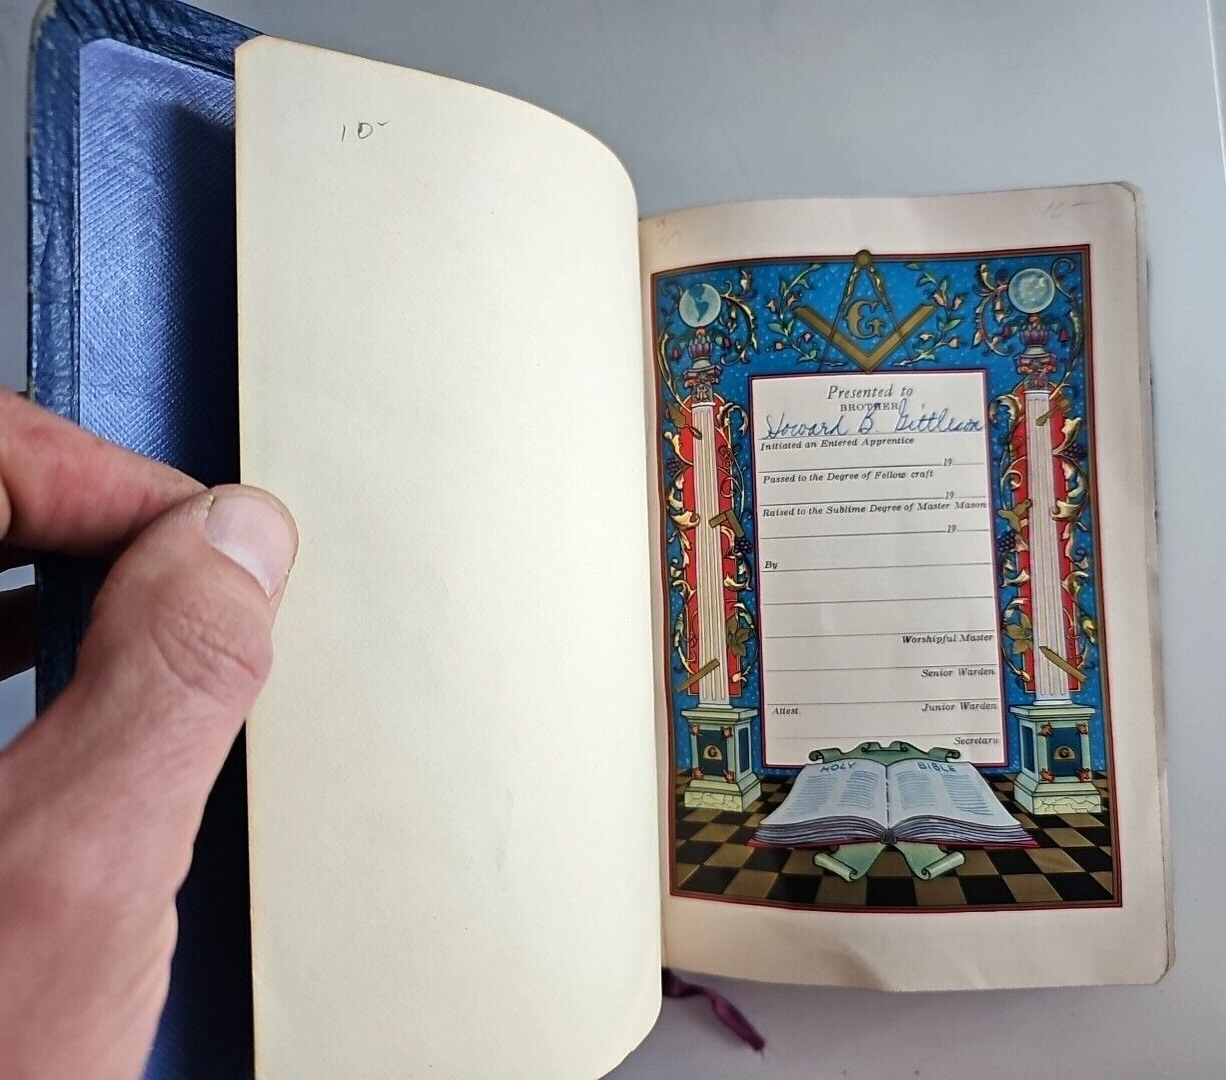 10-
10-
G
Presented to
BROTHER
Howard B. Gittleson
Initiated an Entered Apprentice
19
Passed to the Degree of Fellow craft
19
Raised to the Sublime Degree of Master Mason
19
By
Worshipful Master
Senior Warden
Junior Warden
Attest.
Secretary
G
G
HOLY BIBLE